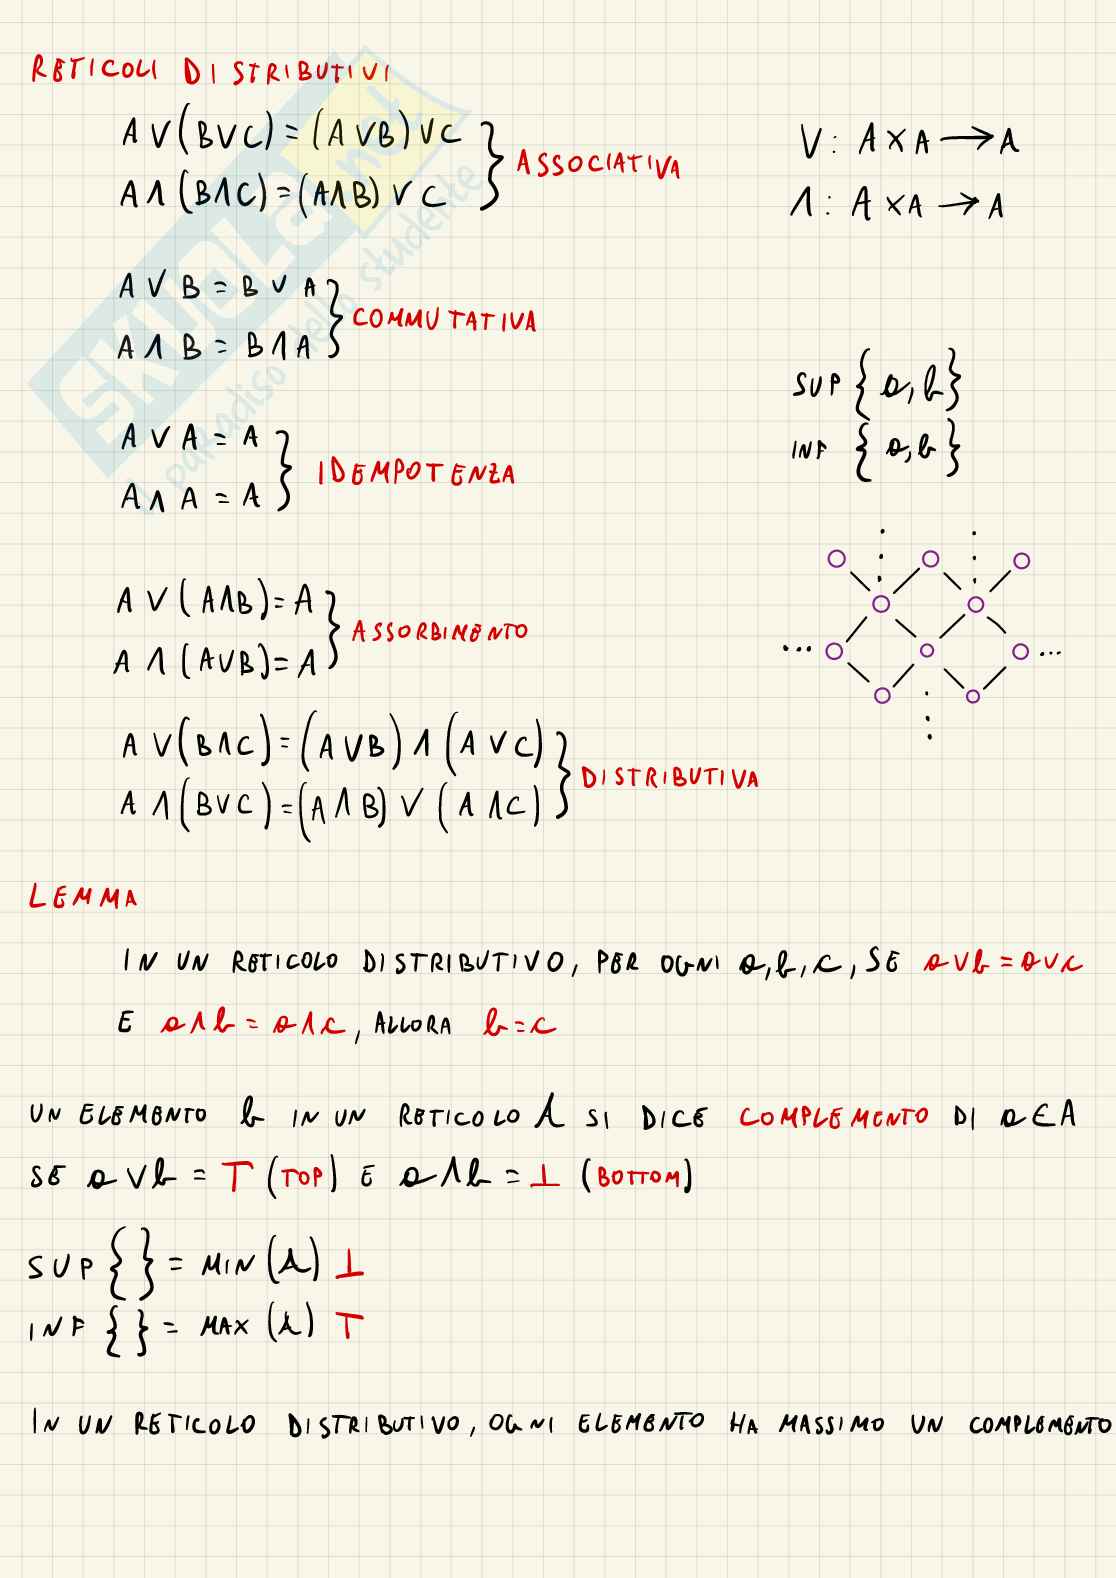 RETICOLI DISTRIBUTIVI
A ∨ (B ∨ C) = (A ∨ B) ∨ C
A ∧ (B ∧ C) = (A ∧ B) ∨ C
ASSOCIATIVA
∨ : A × A → A
∧ : A × A → A
A ∨ B = B ∨ A
A ∧ B = B ∧ A
COMMUTATIVA
SUP { a, b }
INF { a, b }
A ∨ A = A
A ∧ A = A
IDEMPOTENZA
A ∨ (A ∧ B) = A
A ∧ (A ∨ B) = A
ASSORBIMENTO
A ∨ (B ∧ C) = (A ∨ B) ∧ (A ∨ C)
A ∧ (B ∨ C) = (A ∧ B) ∨ (A ∧ C)
DISTRIBUTIVA
LEMMA
IN UN RETICOLO DISTRIBUTIVO, PER OGNI a, b, c, SE a ∨ b = a ∨ c
E a ∧ b = a ∧ c, ALLORA b = c
UN ELEMENTO b IN UN RETICOLO A SI DICE COMPLEMENTO DI a ∈ A
SE a ∨ b = ⊤ (TOP) E a ∧ b = ⊥ (BOTTOM)
SUP { } = MIN (A) ⊥
INF { } = MAX (A) ⊤
IN UN RETICOLO DISTRIBUTIVO, OGNI ELEMENTO HA MASSIMO UN COMPLEMENTO
SKUOLA.net
il paradiso dello studente